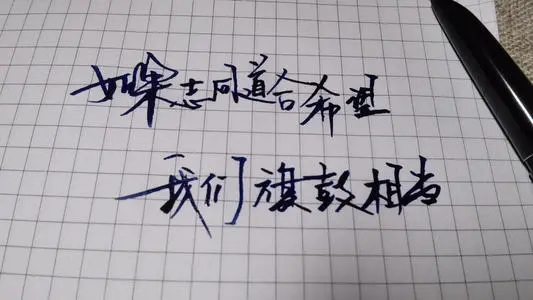 如果志同道合希望
我们旗鼓相当